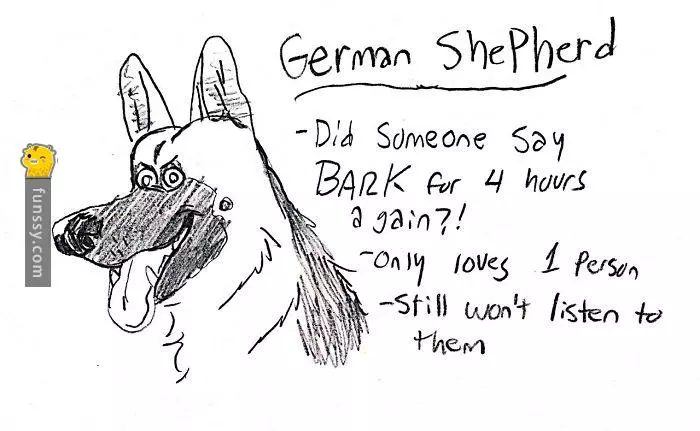 German Shepherd
- Did Someone Say
BARK for 4 hours
again?!
- Only loves 1 Person
- Still won't listen to
them
funssy.com